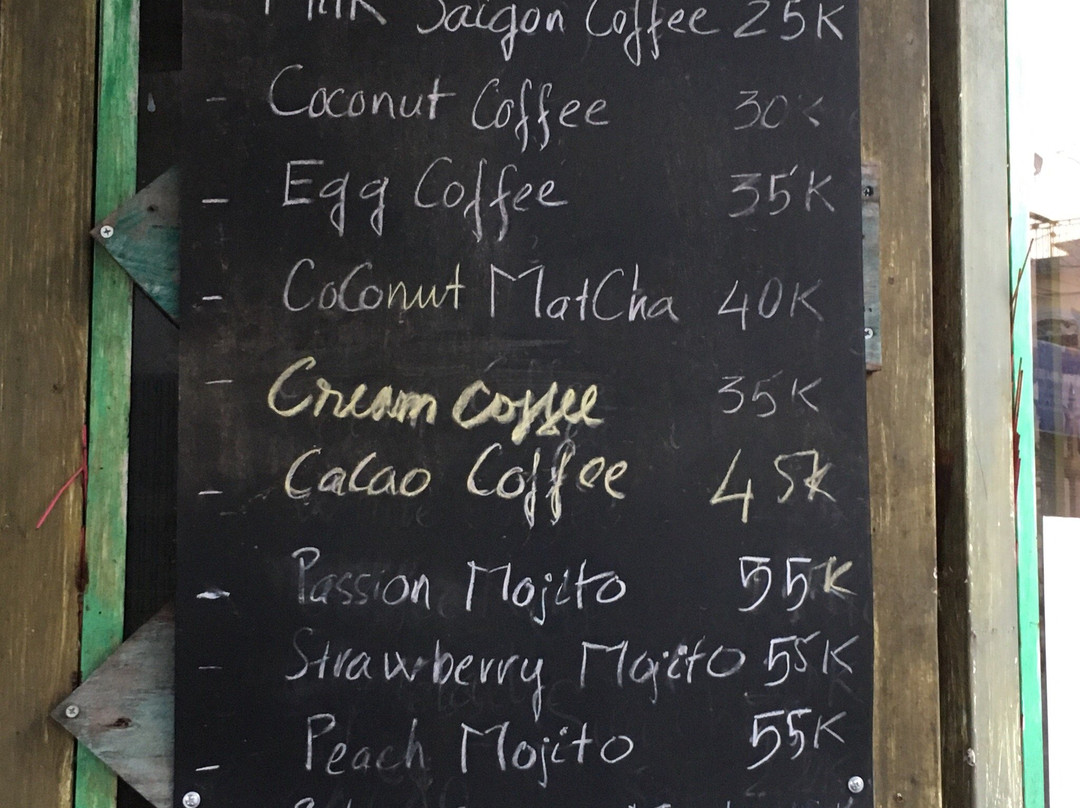 Milk Saigon Coffee 25K
- Coconut Coffee 30K
- Egg Coffee 35K
- CoConut MatCha 40K
- Cream coffee 35K
- CaCao Coffee 45K
- Passion Mojito 55K
- Strawberry Mojito 55K
- Peach Mojito 55K